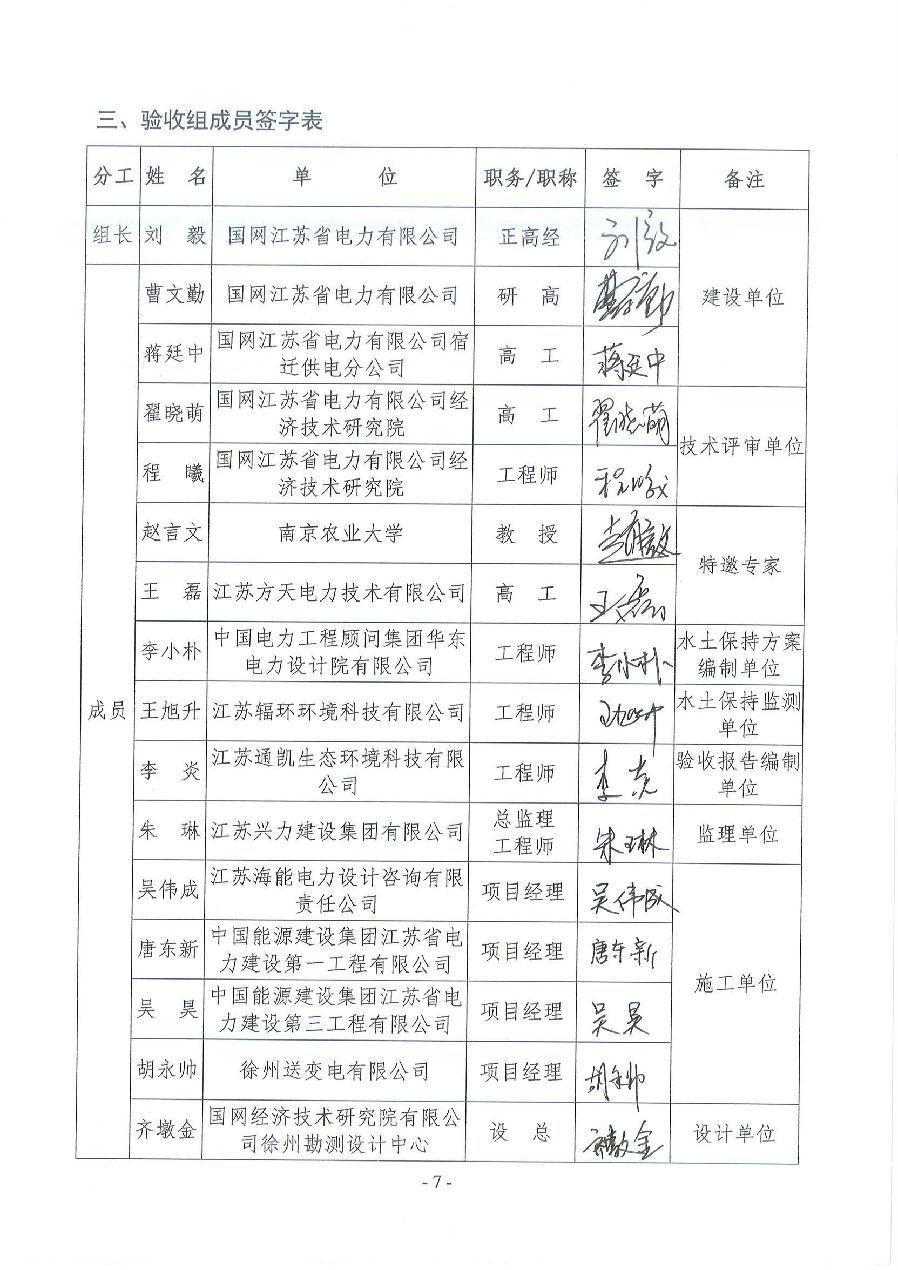 三、验收组成员签字表
分工 姓 名 单 位 职务/职称 签 字 备注
组长 刘 毅 国网江苏省电力有限公司 正高经 刘毅
曹文勤 国网江苏省电力有限公司 研 高 曹文勤 建设单位
蒋廷中 国网江苏省电力有限公司宿
迁供电分公司 高 工 蒋廷中
翟晓萌 国网江苏省电力有限公司经
济技术研究院 高 工 翟晓萌
技术评审单位
程 曦 国网江苏省电力有限公司经
济技术研究院 工程师 程曦
赵言文 南京农业大学 教 授
特邀专家
王 磊 江苏方天电力技术有限公司 高 工 王磊
李小朴 中国电力工程顾问集团华东
电力设计院有限公司 工程师 李小朴 水土保持方案
编制单位
成员 王旭升 江苏辐环环境科技有限公司 工程师 王旭升 水土保持监测
单位
李 炎 江苏通凯生态环境科技有限
公司 工程师 李炎 验收报告编制
单位
朱 琳 江苏兴力建设集团有限公司 总监理
工程师 朱琳 监理单位
吴伟成 江苏海能电力设计咨询有限
责任公司 项目经理 吴伟成
唐东新 中国能源建设集团江苏省电
力建设第一工程有限公司 项目经理 唐东新
施工单位
吴 昊 中国能源建设集团江苏省电
力建设第三工程有限公司 项目经理 吴昊
胡永帅 徐州送变电有限公司 项目经理 胡永帅
齐墩金 国网经济技术研究院有限公
司徐州勘测设计中心 设 总 齐墩金 设计单位
- 7 -